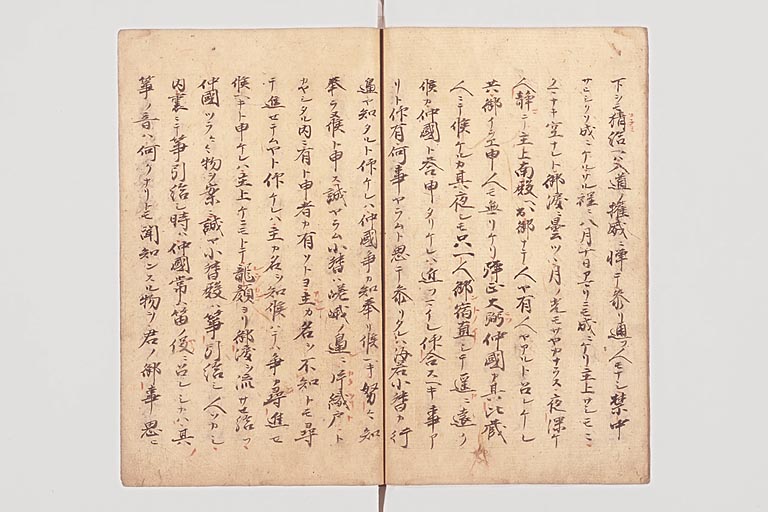 下シ猜給ヘハ入道ノ権威ニ憚テ参リ通フ人モナシ禁中
サヒシウソ成ニケルサル程ニ八月十日アマリニモ成ニケリ主上サシモニ
クマナキ空ナレト御涙ニ曇ツヽ月ノ光モサヤカナラス夜深ケ
人静テ主上南殿ヘ出御ナテ人ヤ有ヽヤアルト召レケレ
共御イラエ申人モ無リケリ弾正大弼仲國カ其比蔵
人ニテ候ケルカ其夜シモ只一人御宿直シテ遥ニ遠ク
候カ仲國ト答申タリケレハ近フマイレ仰合スヘキ事ア
リト仰有何事ヤラムト思テ参リタレハ汝若小督カ行
邉ヤ知タルト仰ケレハ仲國争カ知奉リ候ヘキ努々知
奉ラス候ト申ス誠ヤラム小督ハ嵯峨ノ邉ニ片織戸ト
カヤシタル内ニ有ト申者カ有ソトヨ主カ名ヲ不知トモ尋
テ進セテムヤト仰ケレハ主カ名ヲ知候ハテハ争カ尋進セ
候ヘキト申ケレハ主上ケニモトテ龍顔ヨリ御涙ヲ流サセ給フ
仲國ツラヽヽ物ヲ案ニ誠ヤ小督殿ハ箏引給シ人ソカシ
内裏ニテ箏引給シ時ハ仲國常ハ笛ノ役ニ召レシカハ其
箏ノ音ハ何クナリトモ聞知ンスル物ヲ君ノ御事思ヒ